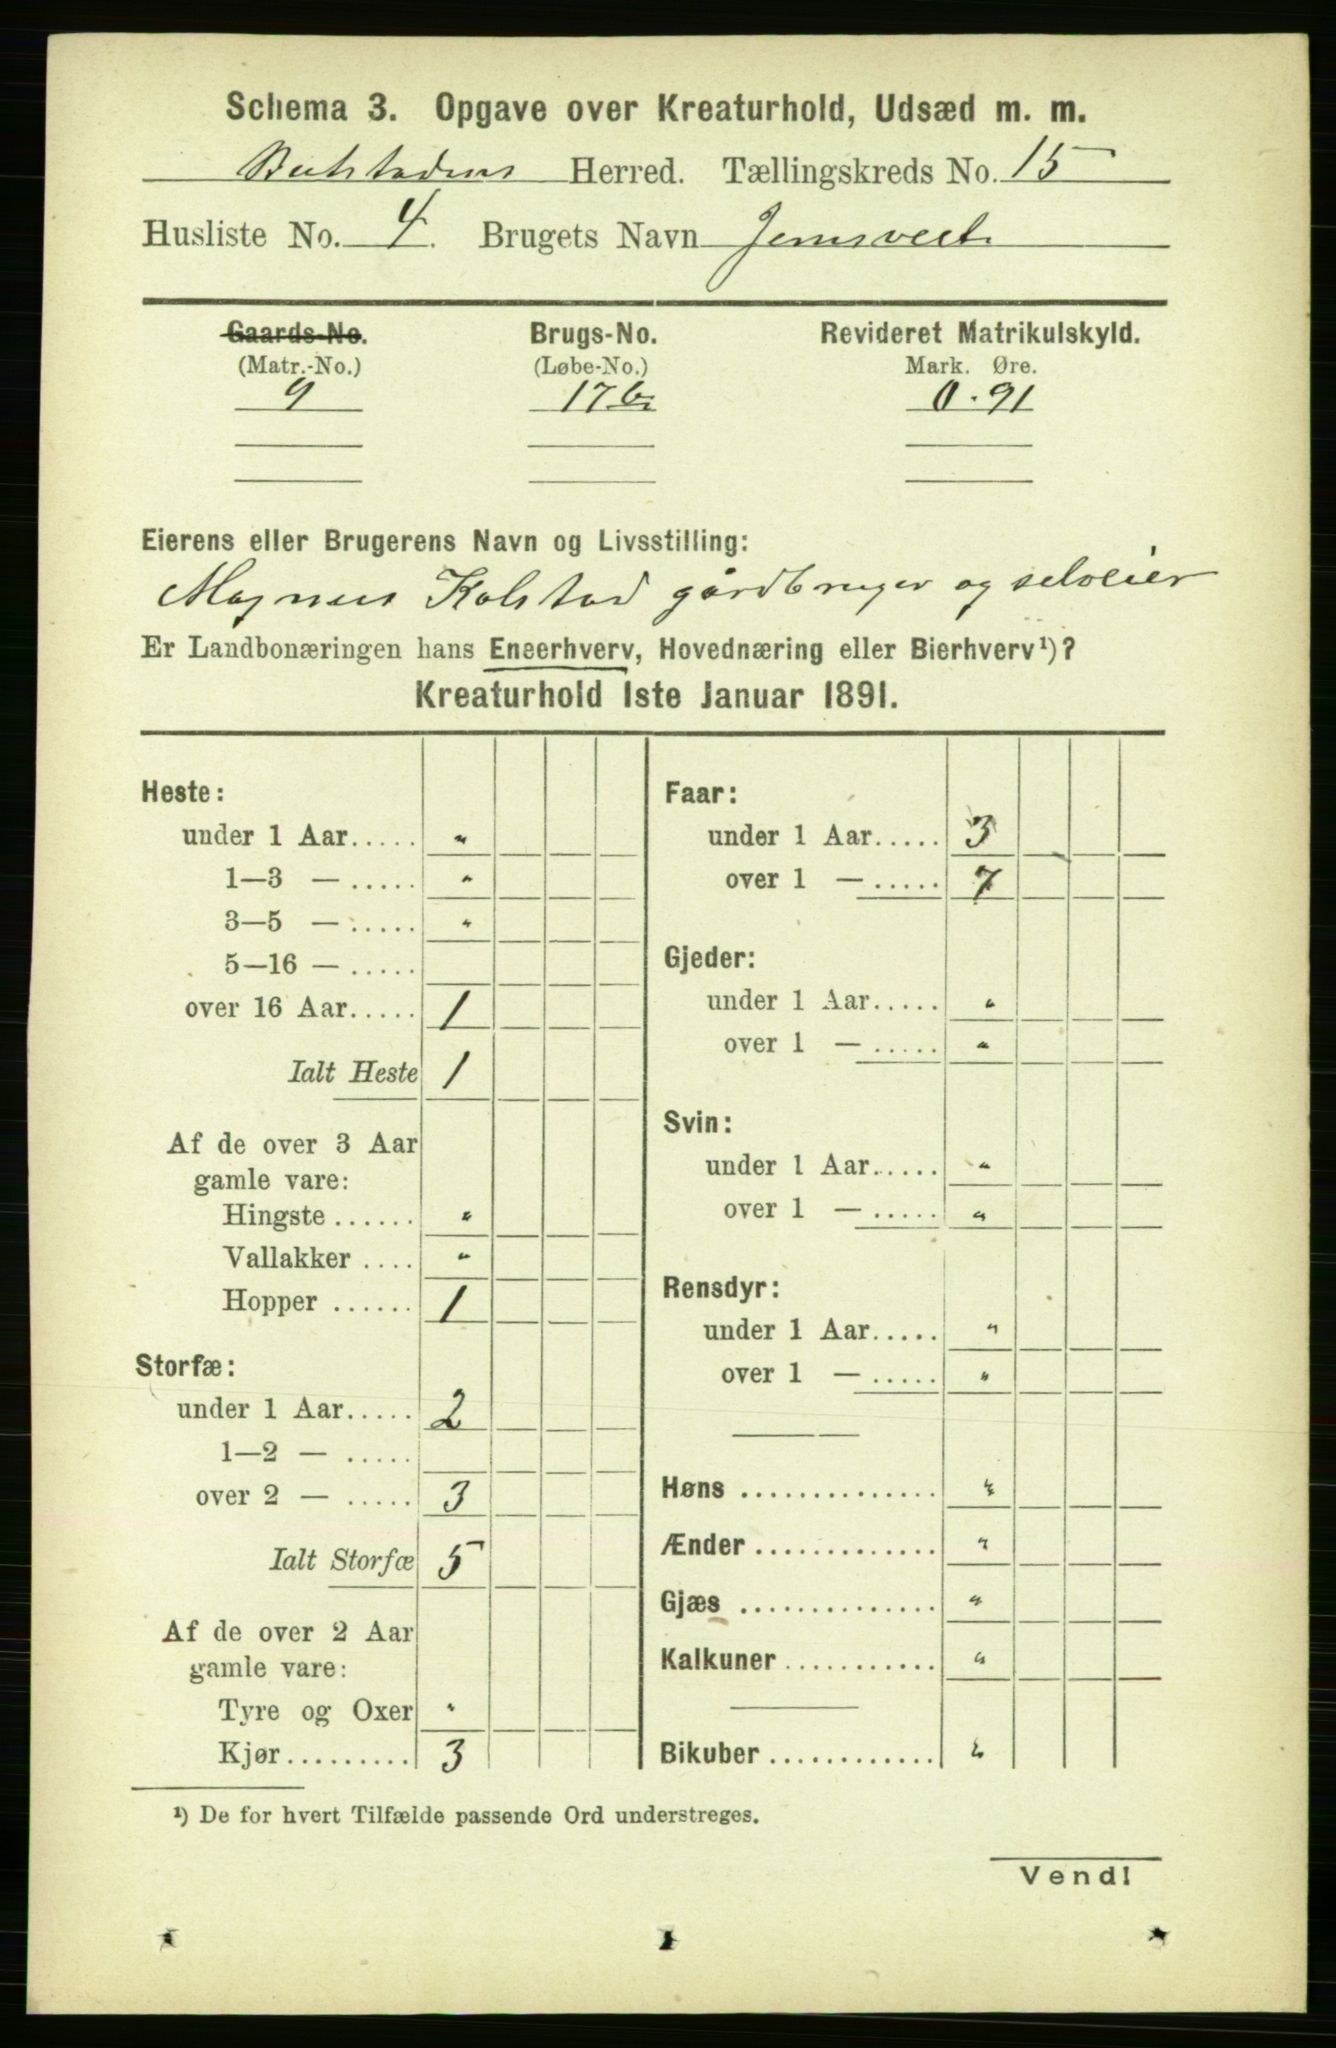 Schema 3. Opgave over Kreaturhold, Udsæd m. m.
Beitstadens Herred. Tællingskreds No. 15
Husliste No. 4. Brugets Navn
Gaards-No. Brugs-No. Revideret Matrikulskyld.
(Matr.-No.) (Løbe-No.) Mark. Øre.
9 17 b 0.91
Eierens eller Brugerens Navn og Livsstilling:
Magnus Kolstad gårdbruger og selveier
Er Landbonæringen hans Eneerhverv, Hovednæring eller Bierhverv¹)?
Kreaturhold 1ste Januar 1891.
Heste:
under 1 Aar..... "
1—3 — ..... "
3—5 — ..... "
5—16 — .....
over 16 Aar..... 1
Ialt Heste 1
Af de over 3 Aar
gamle vare:
Hingste ...... "
Vallakker .... "
Hopper ...... 1
Storfæ:
under 1 Aar..... 2
1—2 — .....
over 2 — ..... 3
Ialt Storfæ 5
Af de over 2 Aar
gamle vare:
Tyre og Oxer "
Kjør......... 3
Faar:
under 1 Aar..... 3
over 1 — ..... 7
Gjeder:
under 1 Aar..... "
over 1 — ..... "
Svin:
under 1 Aar..... "
over 1 — ..... "
Rensdyr:
under 1 Aar..... "
over 1 — ..... "
Høns .............. "
Ænder ............. "
Gjæs .............. "
Kalkuner ........... "
Bikuber ............ "
¹) De for hvert Tilfælde passende Ord understreges.
Vend!